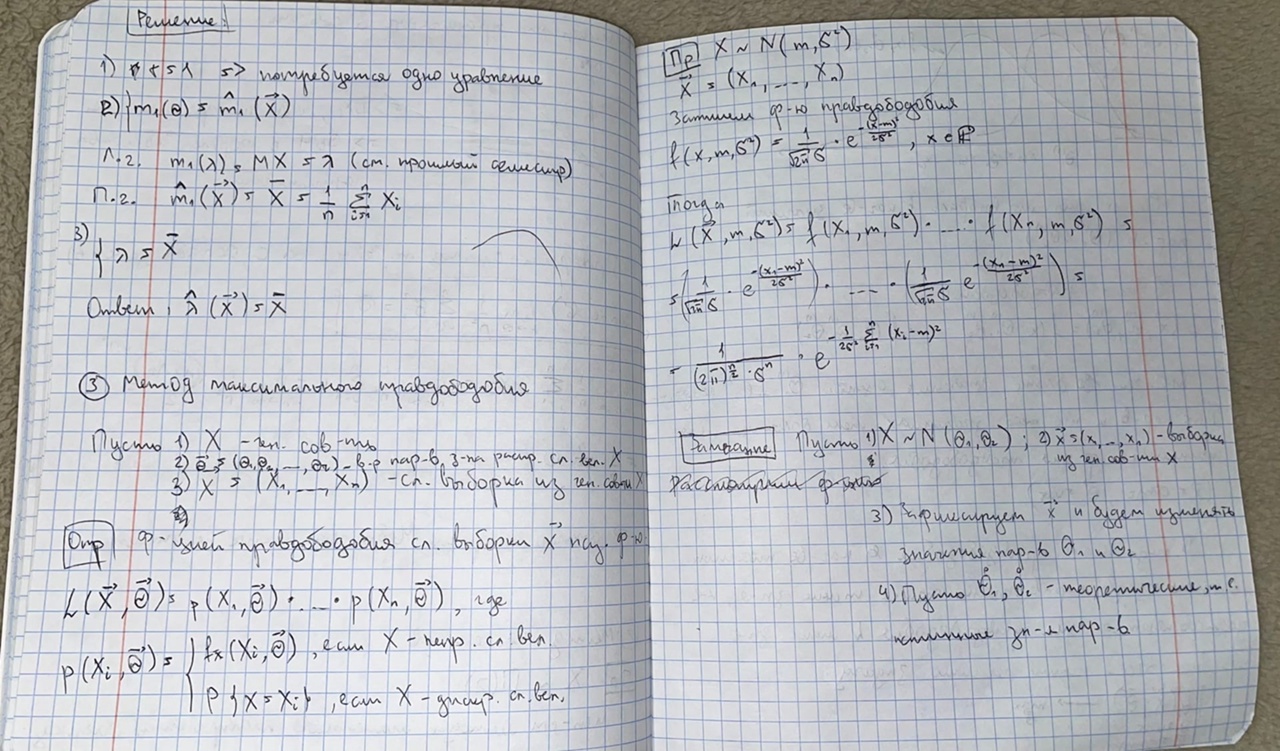 Решение:
1) r = 1 => потребуется одно уравнение
2) { m₁(θ) = m̂₁(X⃗)
Л.ч. m₁(λ) = MX = λ (см. прошлый семестр)
П.ч. m̂₁(X⃗) = X̄ = 1/n ∑ⁿᵢ₌₁ Xᵢ
3) { λ = X̄
Ответ: λ̂(X⃗) = X̄
③ Метод максимального правдободобия
Пусть 1) X - ген. сов-ть
2) θ⃗ = (θ₁, θ₂, ..., θ₂) - в-р пар-в з-на распр. сл. вел. X
3) X⃗ = (X₁, ..., Xₙ) - сл. выборка из ген. сов-ти X
Опр Ф-цией правдободобия сл. выборки X⃗ наз. ф-ю
L(X⃗, θ⃗) = p(X₁, θ⃗) · ... · p(Xₙ, θ⃗), где
p(Xᵢ, θ⃗) = { fₓ(Xᵢ, θ⃗), если X - непр. сл. вел.
P{X = Xᵢ}, если X - дискр. сл. вел.
Пр X ~ N(m, σ²)
X⃗ = (X₁, ..., Xₙ)
Запишем ф-ю правдободобия
f(x, m, σ²) = 1/(√2π σ) · e^(-(x-m)²/2σ²), x ∈ ℝ
Тогда
L(X⃗, m, σ²) = f(X₁, m, σ²) · ... · f(Xₙ, m, σ²) =
= (1/(√2π σ) · e^(-(x₁-m)²/2σ²)) · ... · (1/(√2π σ) e^(-(xₙ-m)²/2σ²)) =
= 1/((2π)^(n/2) · σⁿ) · e^(-1/2σ² ∑ⁿᵢ₌₁ (xᵢ-m)²)
Замечание Пусть 1) X ~ N(θ₁, θ₂); 2) x⃗ = (x₁, ..., xₙ) - выборка
из ген. сов-ти X
Рассмотрим ф-цию
3) Зафиксируем x⃗ и будем изменять
значения пар-в θ₁ и θ₂
4) Пусть θ̊₁, θ̊₂ - теоретические, т.е.
истинные зн-я пар-в